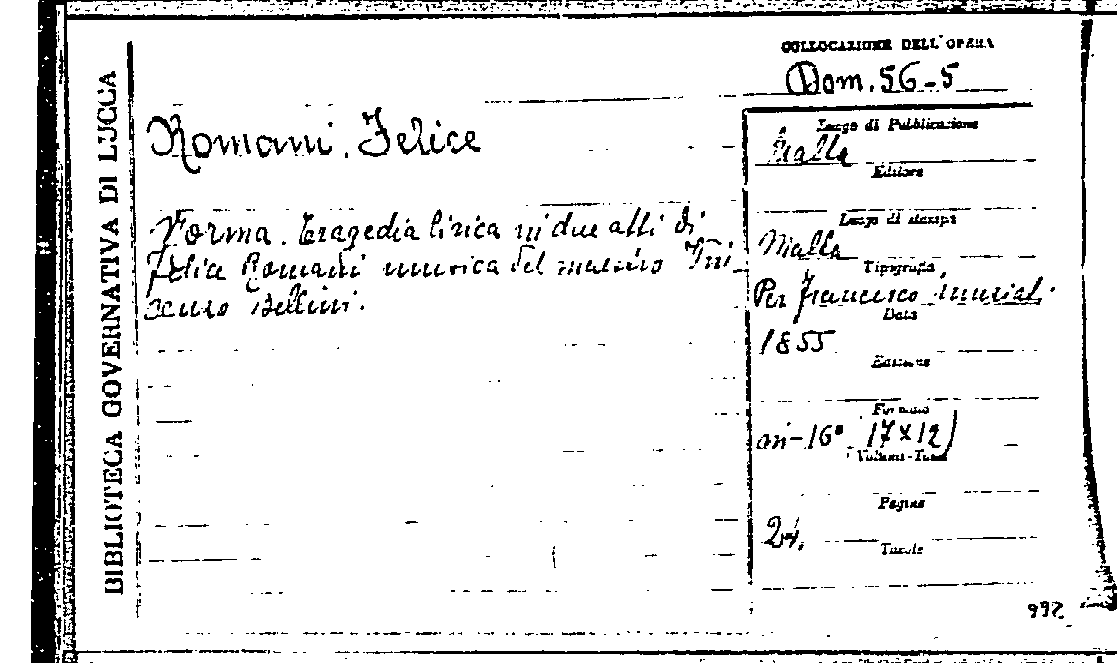 BIBLIOTECA GOVERNATIVA DI LUCCA
COLLOCAZIONE DELL'OPERA
Dom. 56-5
Romani, Felice
Norma. Tragedia lirica in due atti di
Felice Romani musica del maestro Vin-
cenzo Bellini.
Luogo di Pubblicazione
Malta
Editore
Luogo di stampa
Malta
Tipografia
Per Francesco
Data
1855
Edizione
Formato
in-16° (17x12)
Volumi-Tomi
Pagine
24.
Tavole
992